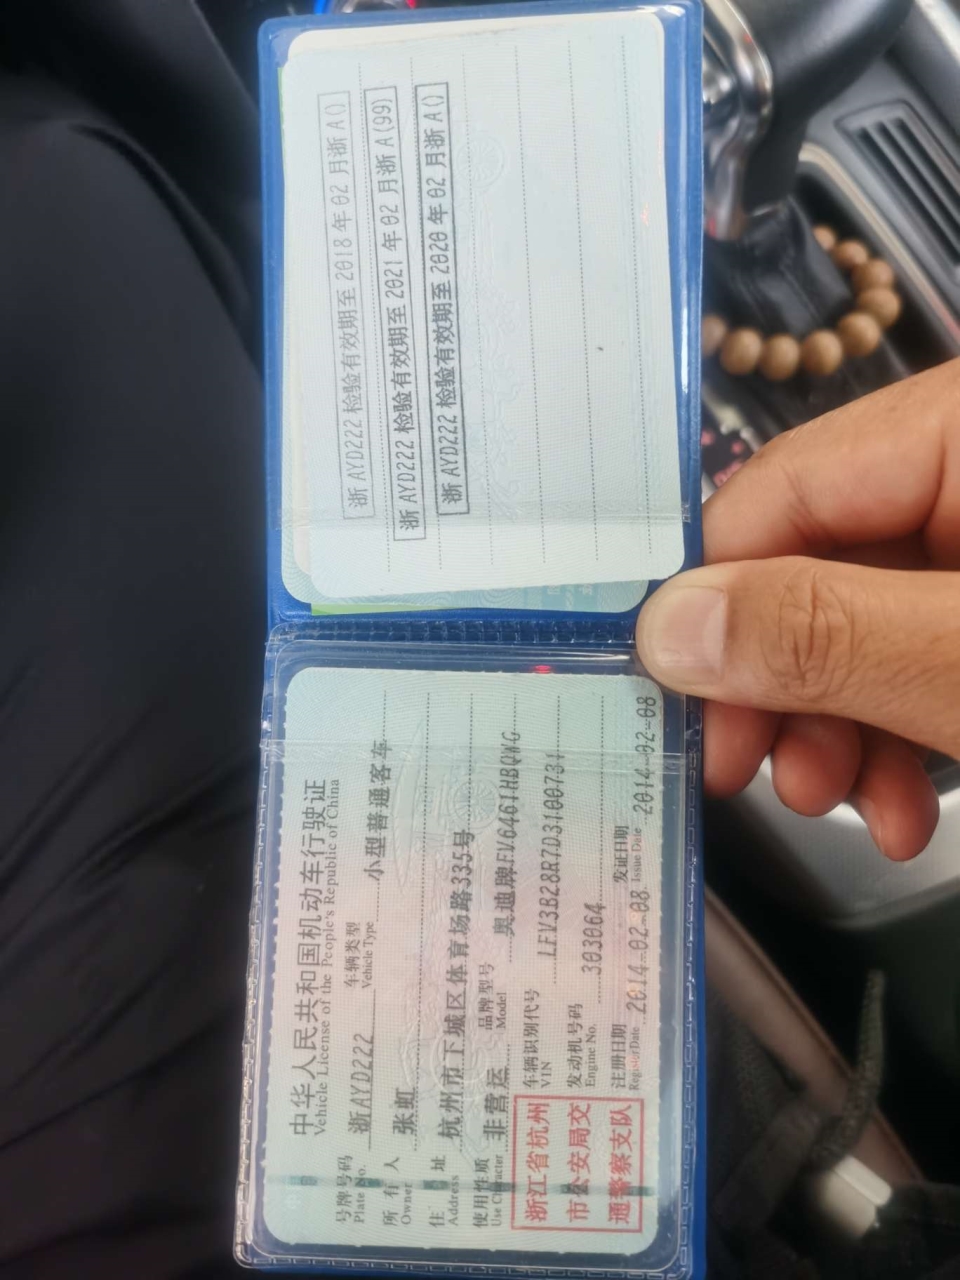 中华人民共和国机动车行驶证
Vehicle License of the People's Republic of China
号牌号码 浙AYD222 车辆类型 小型普通客车
Plate No. Vehicle Type
所有人 张虹
Owner
住址 杭州市下城区体育场路335号
Address
使用性质 非营运 品牌型号 奥迪牌FV6461HBQWG
Use Character Model
浙江省杭州
市公安局交
通警察支队
车辆识别代号 LFV3B28R7D3100731
VIN
发动机号码 303064
Engine No.
注册日期 2014-02-08 发证日期 2014-02-08
Register Date Issue Date
浙AYD222 检验有效期至 2018 年 02 月浙 A()
浙AYD222 检验有效期至 2021 年 02 月浙 A(99)
浙AYD222 检验有效期至 2020 年 02 月浙 A()